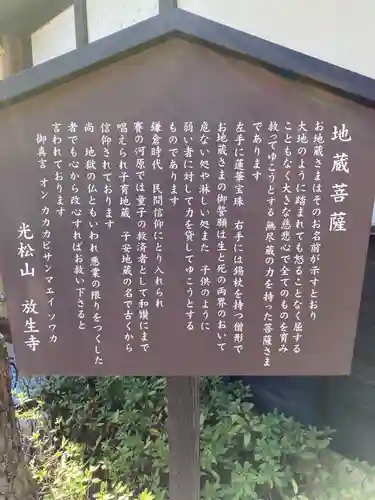 地蔵菩薩
お地蔵さまはそのお名前が示すとおり
大地のように踏まれても怒ることなく屈する
こともなく大きな慈悲心で全てのものを育み
救ってゆこうとする無尽蔵の力を持った菩薩さま
であります
左手に蓮華宝珠 右手には錫杖を持つ僧形で
お地蔵さまの御誓願は生と死の両界のおいて
危ない処や淋しい処また 子供のように
弱い者に対して力を貸してゆこうとする
ものであります
鎌倉時代 民間信仰にとり入れられ
賽の河原では童子の救済者として和讃にまで
唱えられ子育地蔵 子安地蔵の名で古くから
信仰されております
尚 地獄の仏ともいわれ悪業の限りをつくした
者でも心から改心すればお救い下さると
言われております
御真言 オン カカカビサンマエイ・ソワカ
光松山 放生寺